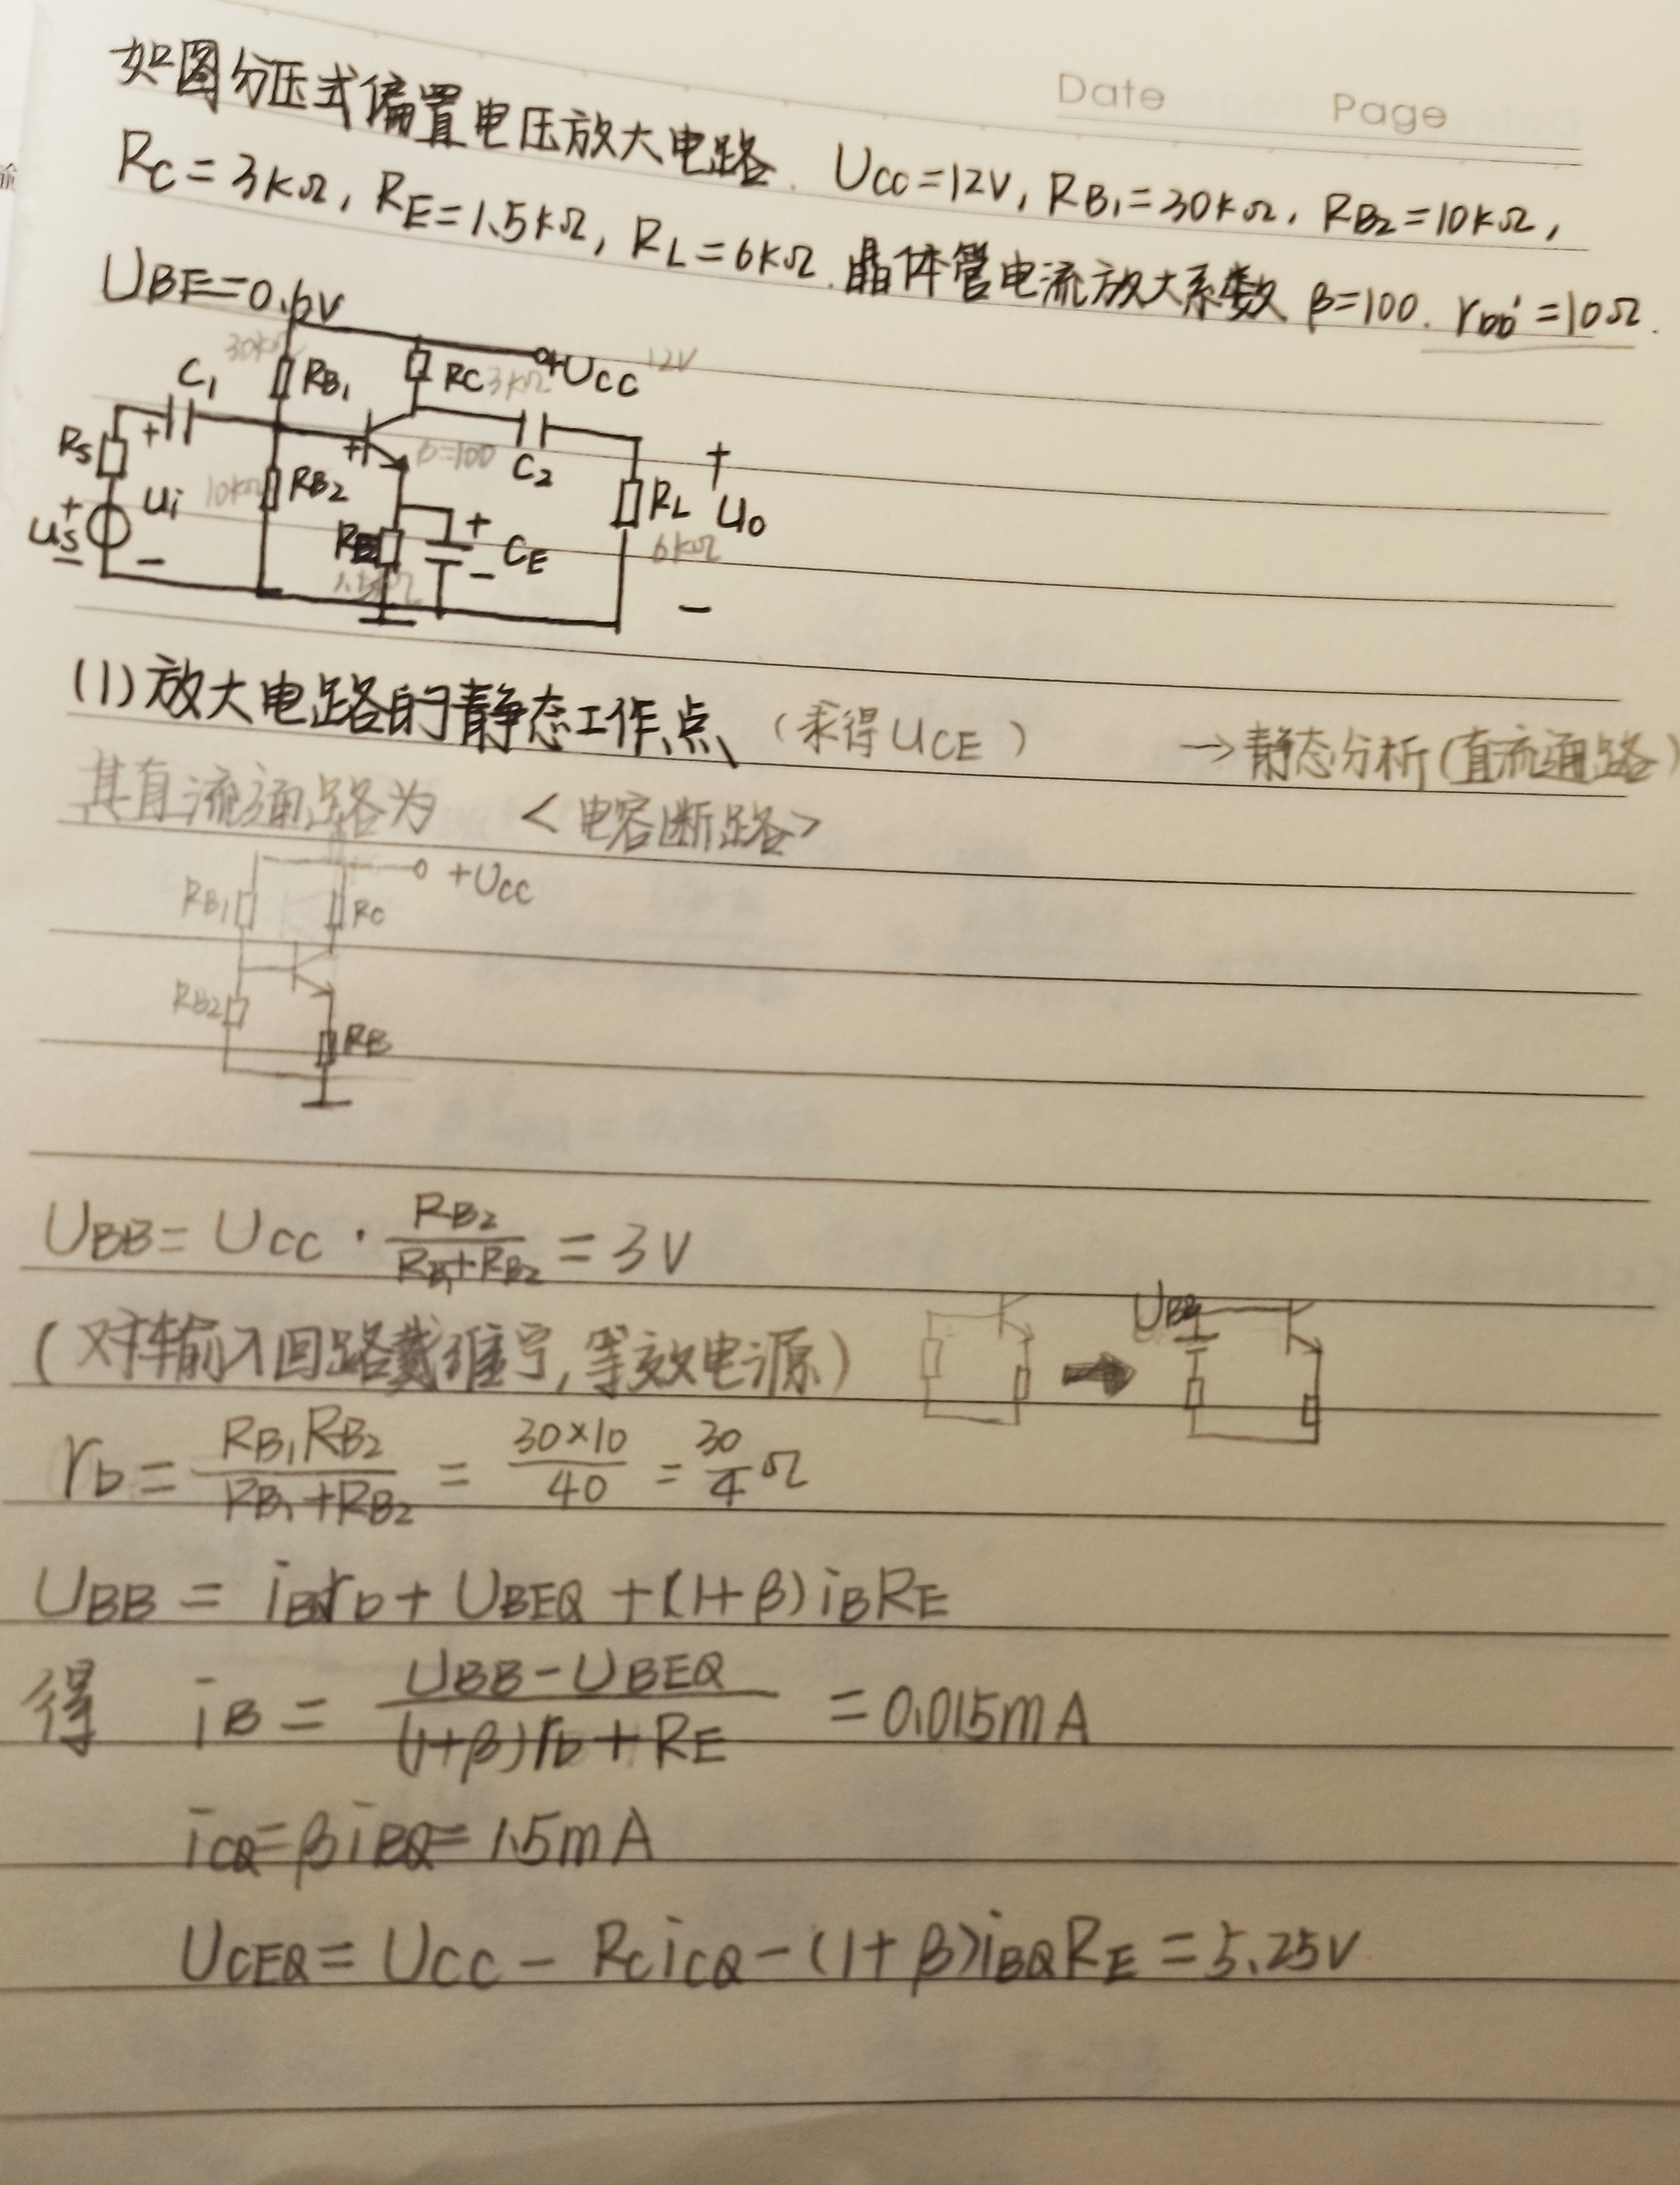 Date Page
如图分压式偏置电压放大电路. UCC=12V, RB1=30kΩ, RB2=10kΩ,
RC=3kΩ, RE=1.5kΩ, RL=6kΩ. 晶体管电流放大系数 β=100. rbb'=10Ω.
UBE=0.6V
30kΩ RB1 RC 3kΩ +UCC 12V
C1
RS + + β=100 C2 +
us + ui 10kΩ RB2 RL uo
- - RE + CE 6kΩ
1.5kΩ - -
(1)放大电路的静态工作点 (求得UCE) →静态分析(直流通路)
其直流通路为 <电容断路>
+UCC
RB1 RC
RB2
RE
UBB=UCC·RB2/(RB1+RB2)=3V
(对输入回路戴维宁,等效电源) UBB
rb=RB1RB2/(RB1+RB2)=30×10/40=30/4Ω
UBB=iBQrb+UBEQ+(1+β)iBRE
得 iB=(UBB-UBEQ)/((1+β)rb+RE)=0.015mA
iCQ=βiBQ=1.5mA
UCEQ=UCC-RCiCQ-(1+β)iBQRE=5.25V